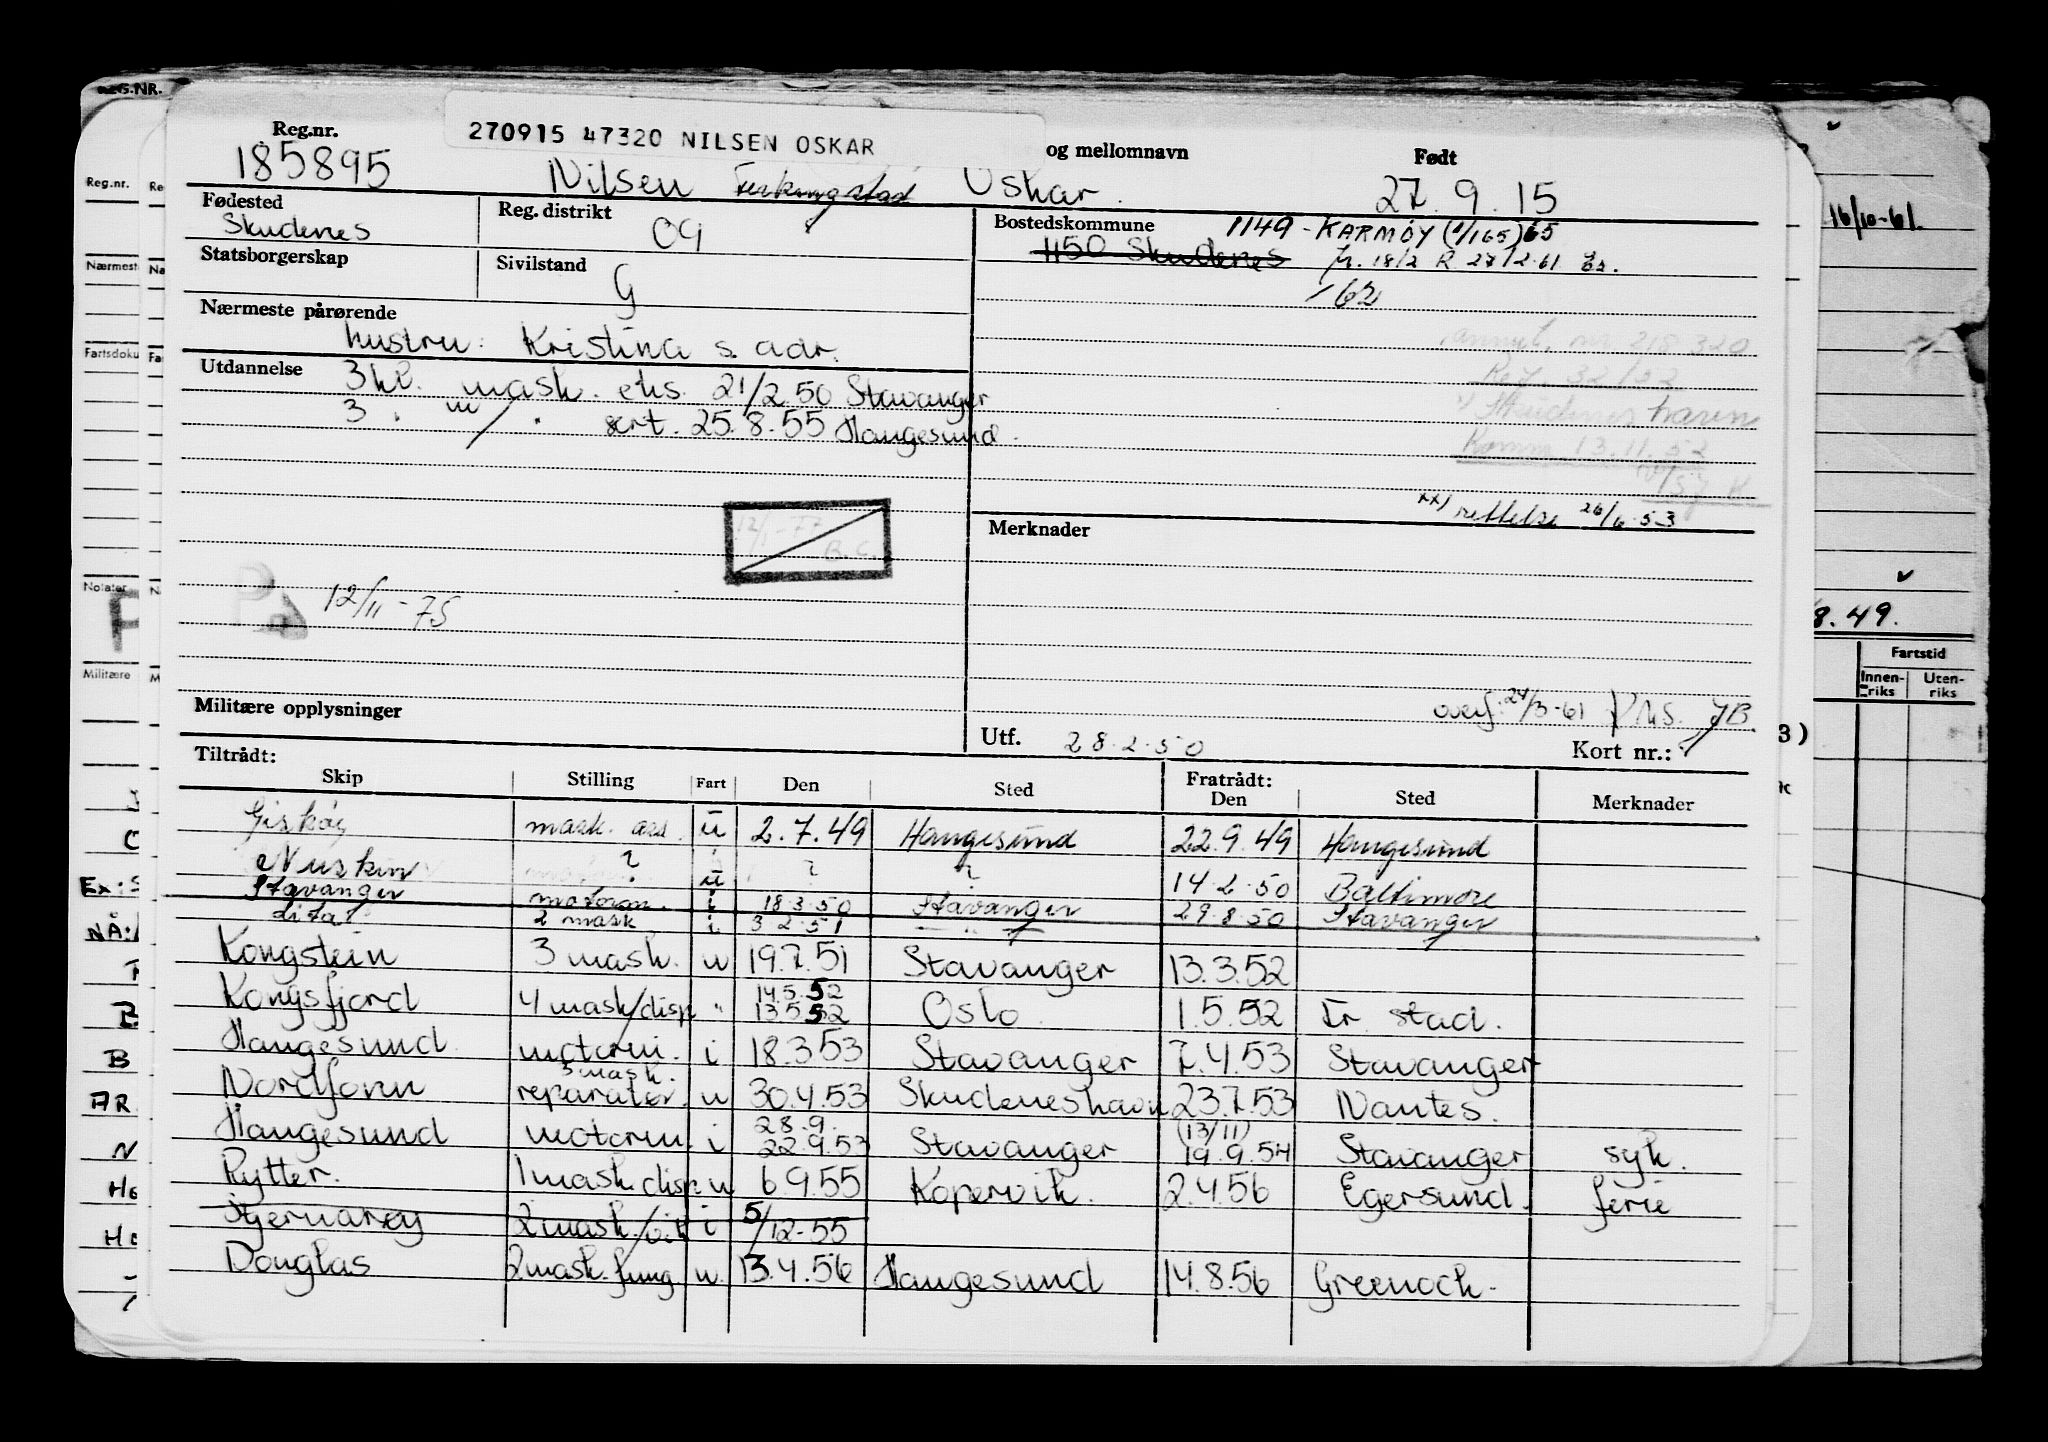 270915 47320 NILSEN OSKAR
Reg.nr. og mellomnavn Født
185895 Nilsen Oskar. 27.9.15
Fødested Skudenes Reg. distrikt Bostedskommune 1149 - KARMØY (1/1 65) 65
1150 Skudenes fr. 18/2 R. 27/2-61
Statsborgerskap Sivilstand G /62
Nærmeste pårørende
hustru: Kristina s. adr.
annul. nr. 218320
Utdannelse 3 kl. mask. eks. 21/2 50 Stavanger
3 " m/ " sert. 25.8.55 Haugesund.
Skudeneshavn
Komm 13.11.52
xx) rettelse 26/6-53
Merknader
12/1-77
B.C.
12/11-75
Militære opplysninger
overf: 24/3-61 JB
Utf. 28.2.50 Kort nr.: 1
Tiltrådt: Fratrådt:
Skip Stilling Fart Den Sted Den Sted Merknader
Giskøy mask. ass. u 2.7.49 Haugesund 22.9.49 Haugesund
? u ? ? 14.2.50 Baltimore
Stavanger motorm. i 18.3.50 Stavanger 29.8.50 Stavanger
2 mask i 3 2.51 — " —
Kongstein 3 mask. u 19.7.51 Stavanger 13.3.52
Kongsfjord 4 mask/disp " 14.5.52 13.5.52 Oslo 1.5.52 Fr. stad.
Haugesund motorm. i 18.3 53 Stavanger 7.4.53 Stavanger
Nordfonn 3 mask. reparatør. u 30.4.53 Skudeneshavn 23.7.53 Nantes.
Haugesund motorm. i 28.9. 22.9.53 Stavanger (13/11) 19.9.54 Stavanger syk.
Rytter. 1 mask. disp u 6.9.55 Kopervik. 2.4.56 Egersund. ferie
Stjernarøy 2 mask/vik i 5/12-55
Douglas 2 mask. fung. u. 13.4.56 Haugesund 14.8.56 Greenock.
Reg.nr.
Nærmest
Fartsdoku
Notater
Militære
16/10-61.
8.49.
Fartstid
Innen-riks Uten-riks